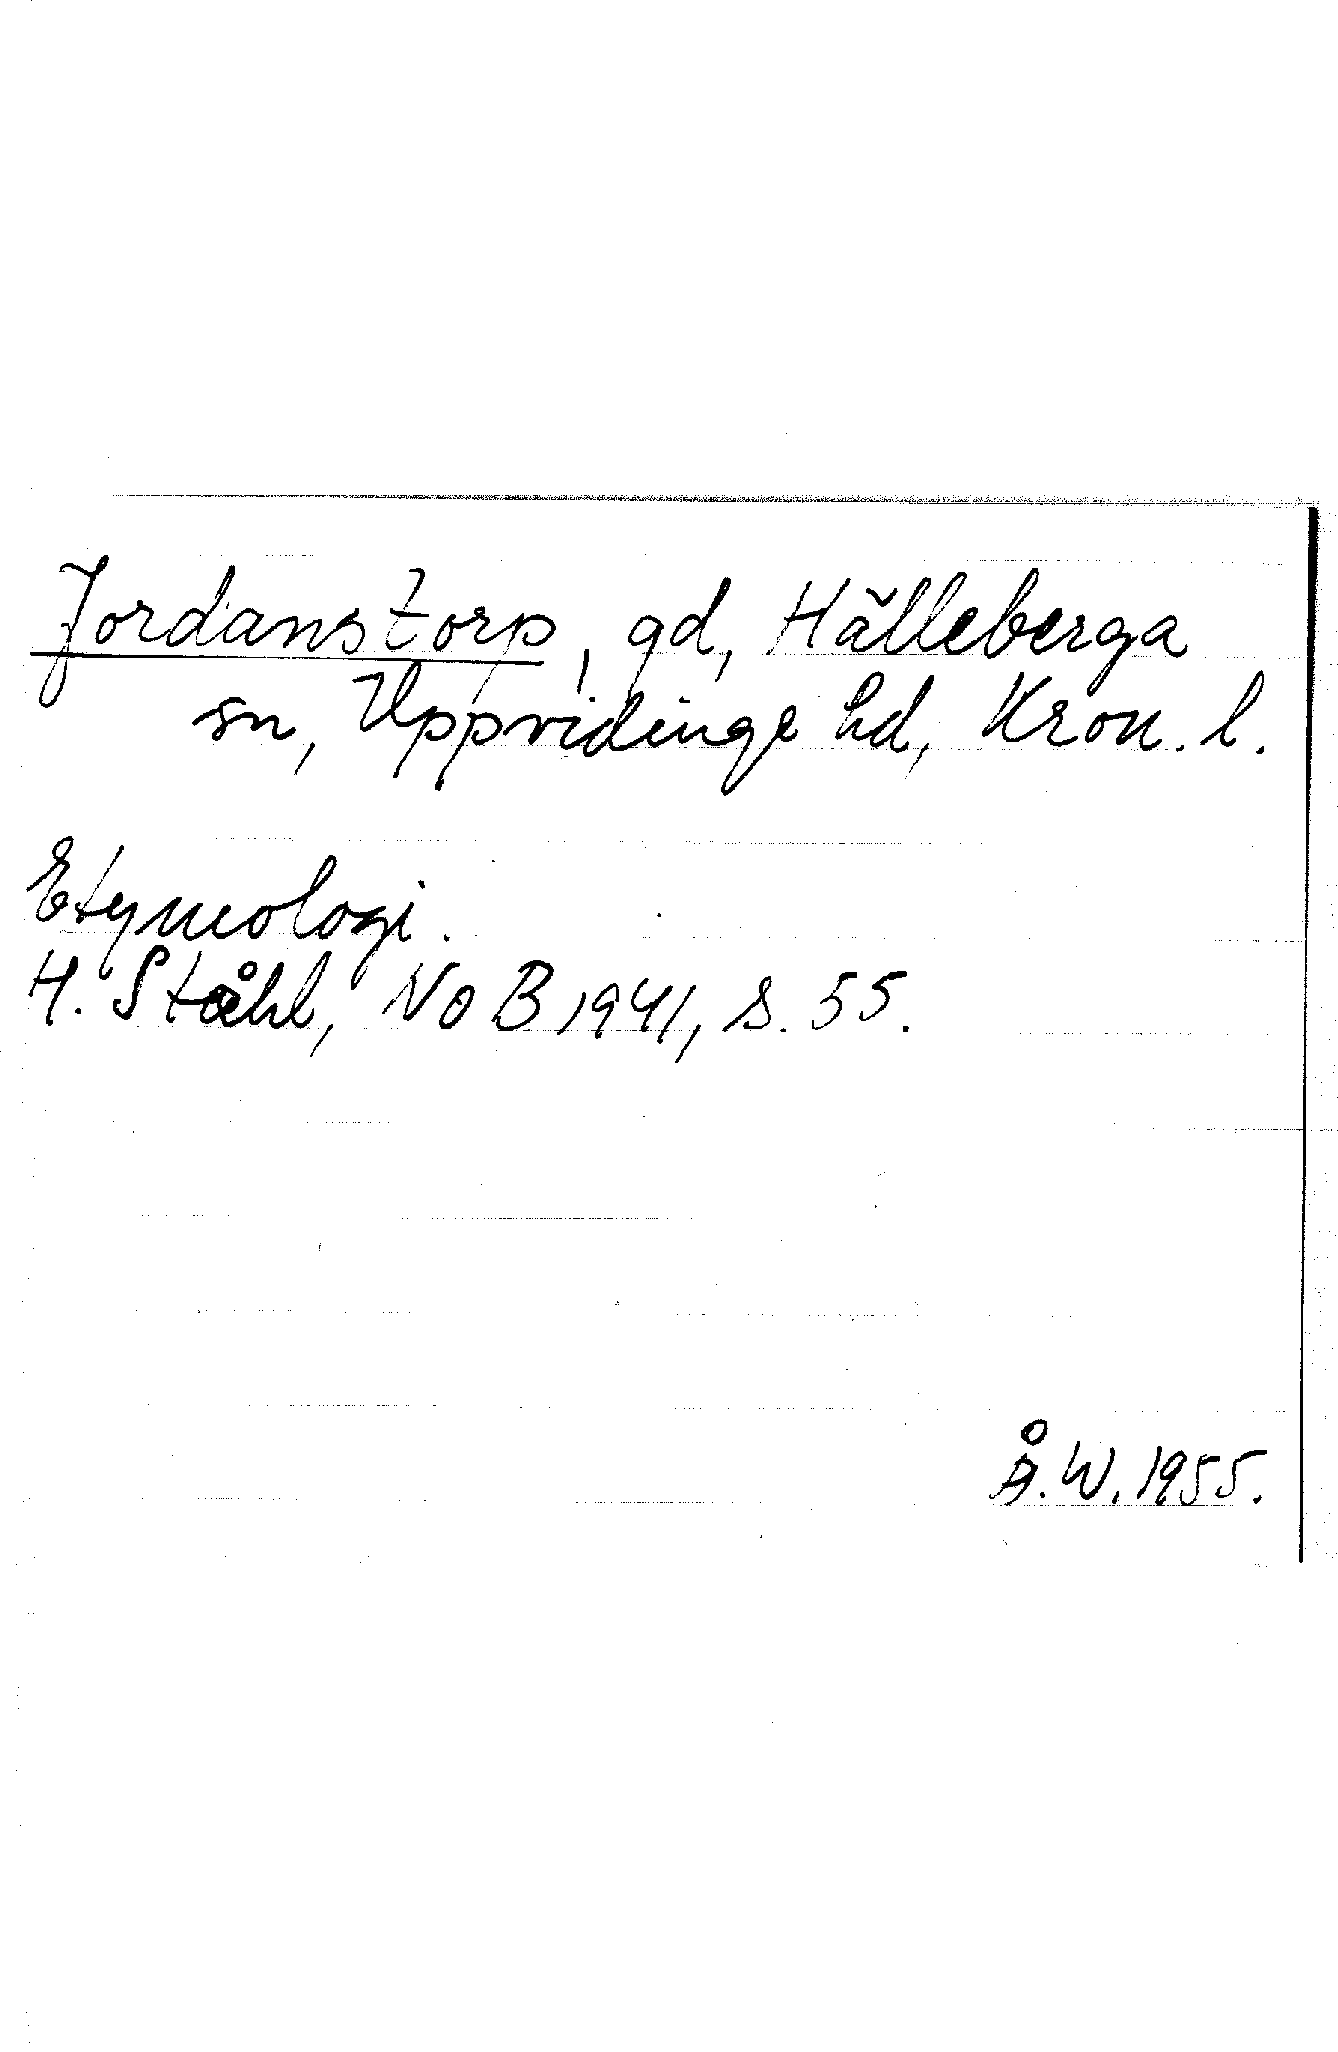 Jordanstorp, gd, Hälleberga
sn, Uppvidinge hd, Kron. l.
Etymologi.
H. Ståhl, NoB 1941, s. 55.
Å.W. 1955.